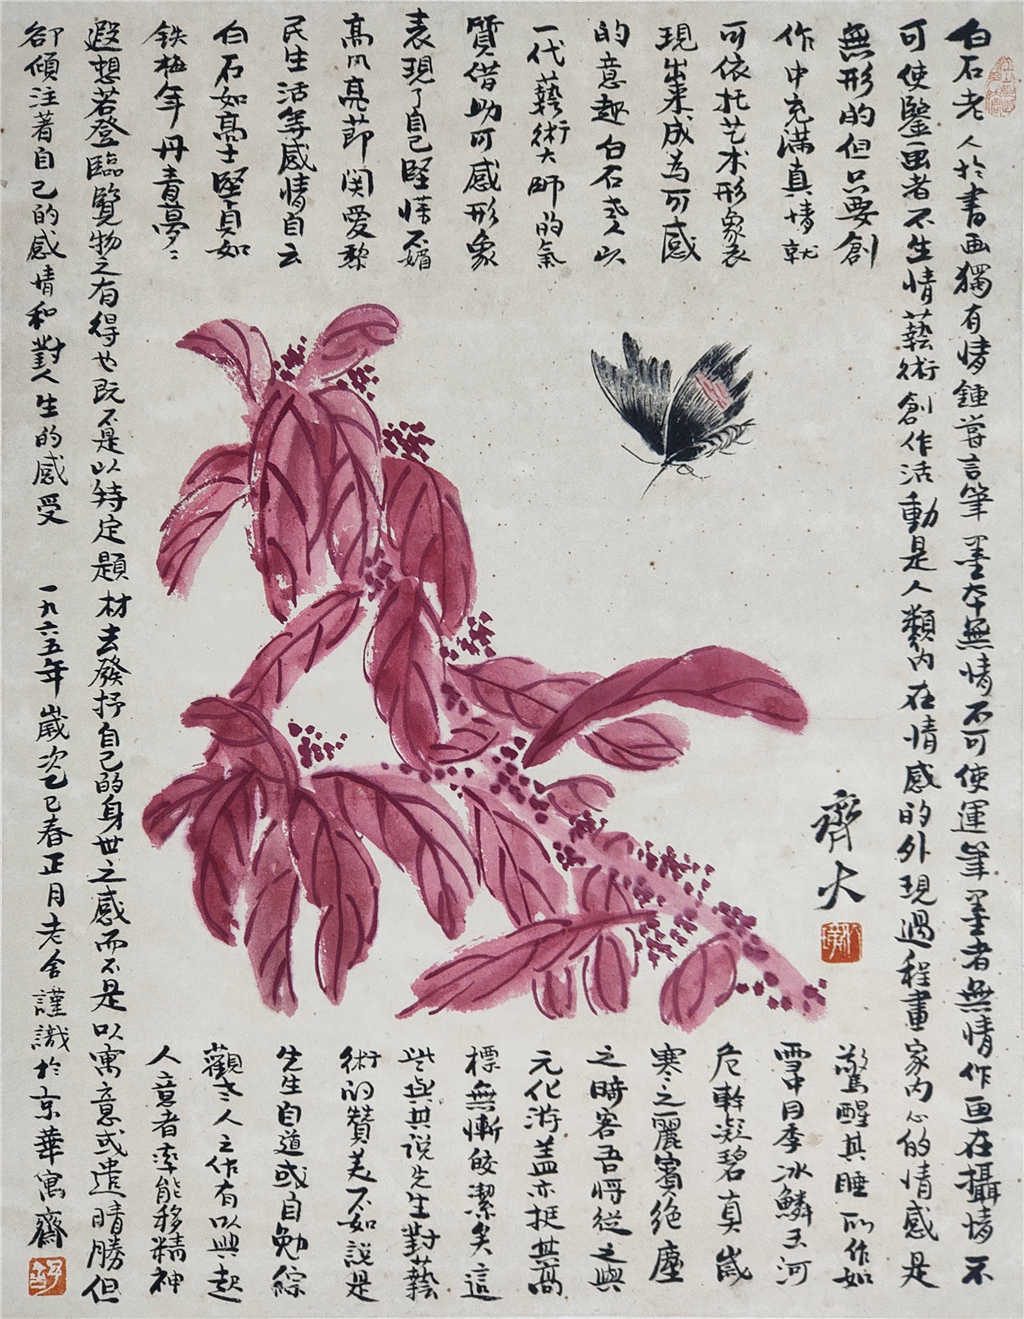 白石老人於書画獨有情鍾嘗言筆墨本無情不可使運筆墨者無情作画在攝情不
可使鑒画者不生情藝術創作活動是人類内在情感的外現過程畫家内心的情感是
無形的但只要創
作中充滿真情就
可依托艺术形象表
現出來成為可感
的意趣白石老人以
一代藝術大師的氣
質借助可感形象
表現了自己堅不媚
高风亮節関愛黎
民生活等感情自云
白石如高士堅貞如
鉄梅年丹青夢々
驚醒其睡所作如
雪中月季冰鱗玉河
危幹凝碧真歲
寒之麗賓绝塵
之時客吾将從之與
元化游盖亦挺其高
標無慚皎潔矣這
些與其说先生對藝
術的贊美不如説是
先生自道或自勉綜
觀老人之作有以興起
人意者率能移精神
遐想若登臨覽物之有得也既不是以特定題材去發抒自己的身世之感而不是以寓意或遣晴勝但
卻傾注著自己的感情和對人生的感受 一九六五年歲次乙巳春正月老舍謹識於京華寓齋
齊大